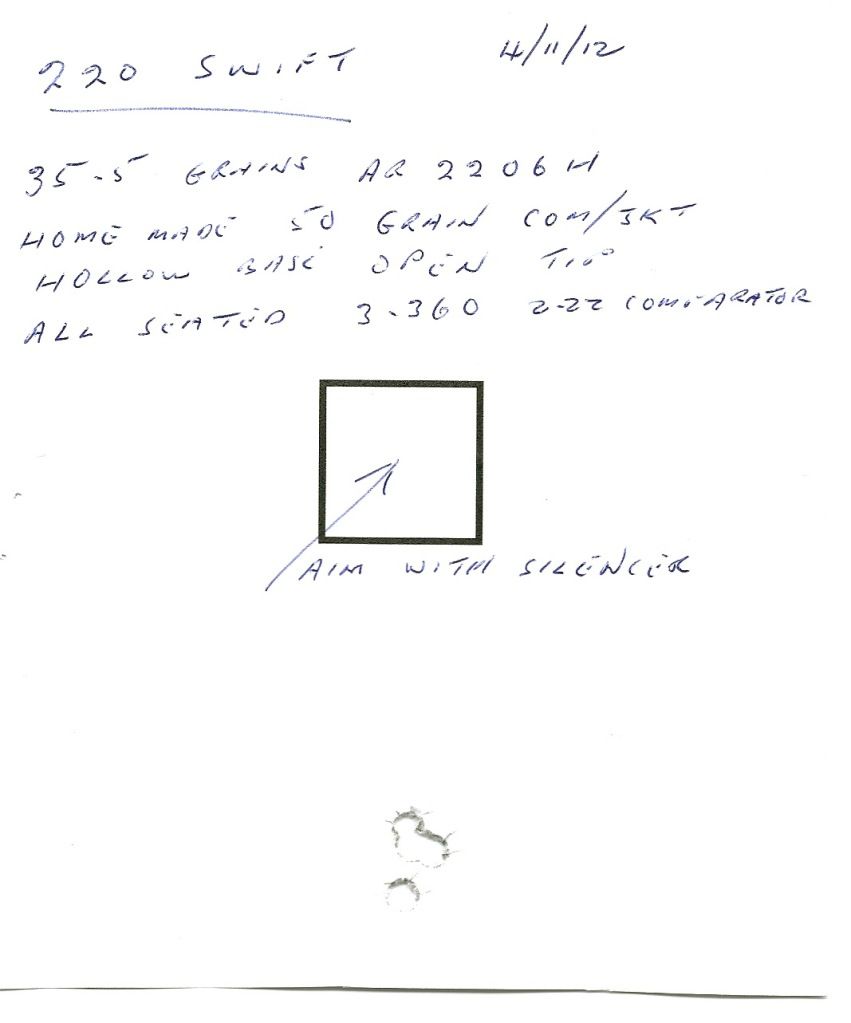 220 SWIFT 4/11/12
35-5 GRAINS AR 2206H
HOME MADE 50 GRAIN COM/JKT
HOLLOW BASE OPEN TIP
ALL SEATED 3-360 2-22 COMPARATOR
AIM WITH SILENCER